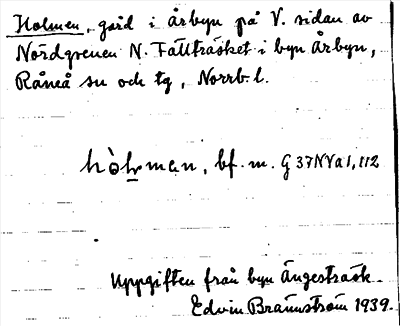 Holmen, gård i Årbyn på V. sidan av
Nordgrenen N. Fällträsket i byn Årbyn,
Råneå sn och tg, Norrb. l.
hòlmən, bf. m. G 37 N V a 1, 112
Uppgiften från byn Ängesträsk.
Edvin Brännström 1939.